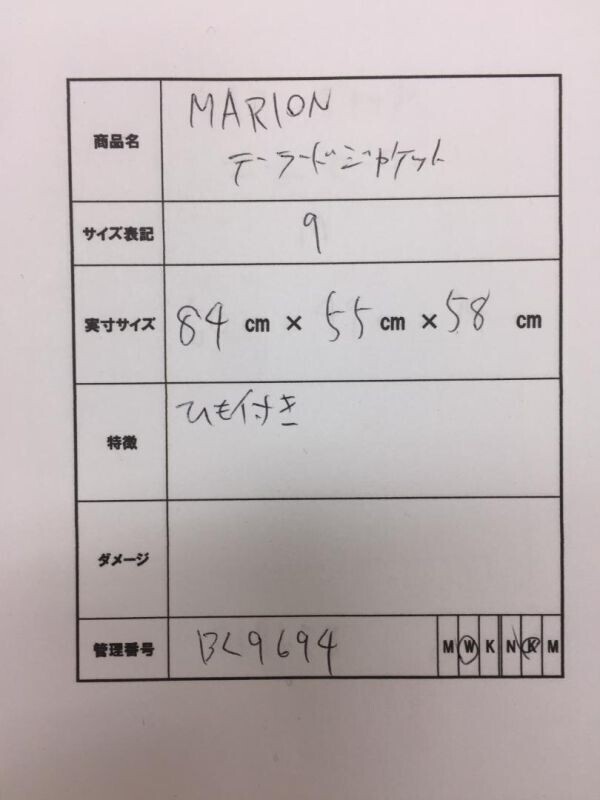 商品名
MARION
テーラードジャケット
サイズ表記
9
実寸サイズ
84 cm × 55 cm × 58 cm
特徴
ひも付き
ダメージ
管理番号
BC9694
M W K N K M